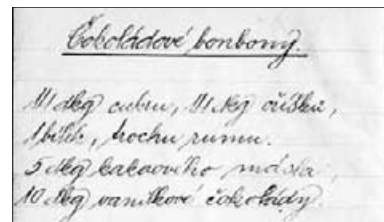 Čokoládové bonbony.
14 dkg cukru, 14 dkg oříšků,
1 bílek, trochu rumu.
5 dkg kakaového másla,
10 dkg vanilkové čokolády.